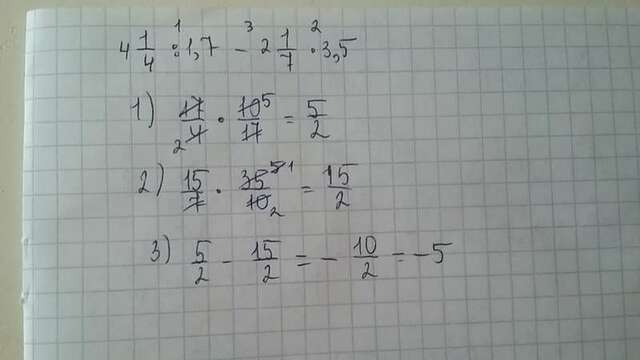 4 1/4 :¹ 1,7 -³ 2 1/7 ·² 3,5
1) 17/4 2 · 10/17 5 = 5/2
2) 15/7 · 35/10 5 1 2 = 15/2
3) 5/2 - 15/2 = - 10/2 = -5